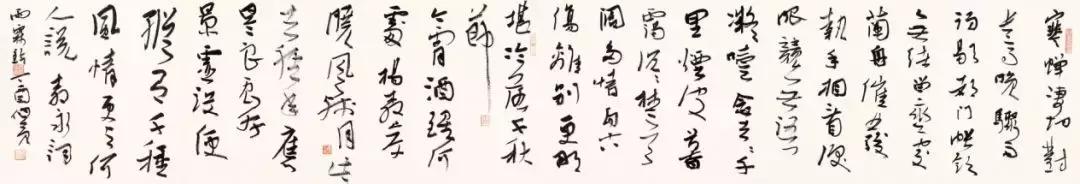 寒蟬淒切對
長亭晚驟雨
初歇都門帳飲
無緒留戀處
蘭舟催發
執手相看淚
眼竟無語
凝噎念去々千
里煙波暮
靄沉々楚天
闊多情自古
傷離別更那
堪冷落清秋
節
今宵酒醒何
處楊柳岸
曉風殘月此
去經年應
是良辰好
景虛設便
縱有千種
風情更與何
人說 柳永詞
雨霖鈴 丁酉